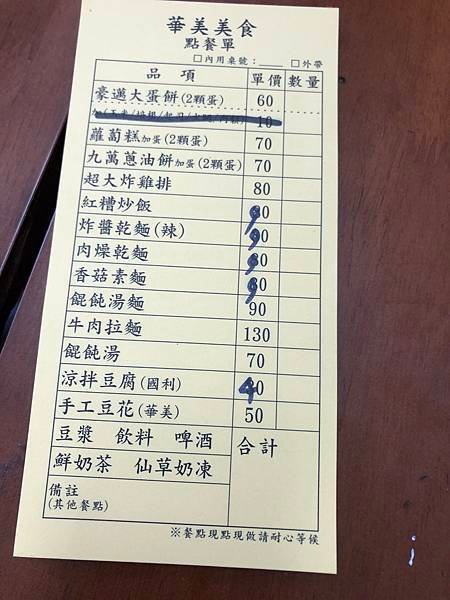 華美美食
點餐單
□內用桌號：____ □外帶
品 項 單價 數量
豪邁大蛋餅(2顆蛋) 60
10
蘿蔔糕加蛋(2顆蛋) 70
九萬蔥油餅加蛋(2顆蛋) 70
超大炸雞排 80
紅糟炒飯 90
炸醬乾麵(辣) 90
肉燥乾麵 90
香菇素麵 90
餛飩湯麵 90
牛肉拉麵 130
餛飩湯 70
涼拌豆腐(國利) 40
手工豆花(華美) 50
豆漿 飲料 啤酒 合計
鮮奶茶 仙草奶凍
備註
(其他餐點)
※餐點現點現做請耐心等候